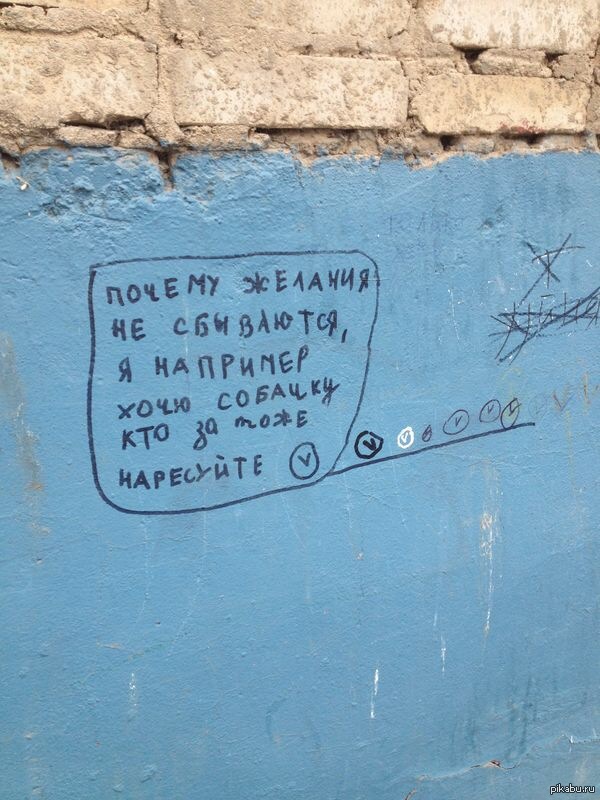 ПОЧЕМУ ЖЕЛАНИЯ
НЕ СБЫВАЮТСЯ,
Я НАПРИМЕР
ХОЧЮ СОБАЧКУ
КТО за тоже
НАРЕСУЙТЕ
pikabu.ru